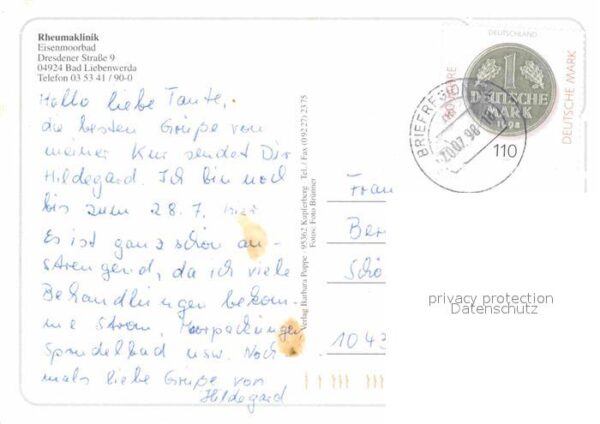 Rheumaklinik
Eisenmoorbad
Dresdener Straße 9
04924 Bad Liebenwerda
Telefon 03 53 41 / 90-0
Hallo liebe Tante,
die besten Grüße von
meiner Kur sendet Dir
Hildegard. Ich bin noch
bis zum 28.7. hier
Es ist ganz schön an-
strengend, da ich viele
Behandlungen bekom-
me Strom, Moorpackungen
Sprudelbad usw. Noch
mals liebe Grüße von
Hildegard
Verlag Barbara Puppe · 95362 Kupferberg · Tel. / Fax (0 92 27) 23 75
Fotos: Foto Brünner
DEUTSCHLAND
1
DEUTSCHE
MARK
DEUTSCHE MARK
110
BRIEFREGION
20.07.98
Frau
Ber
Schö
1043
privacy protection
Datenschutz